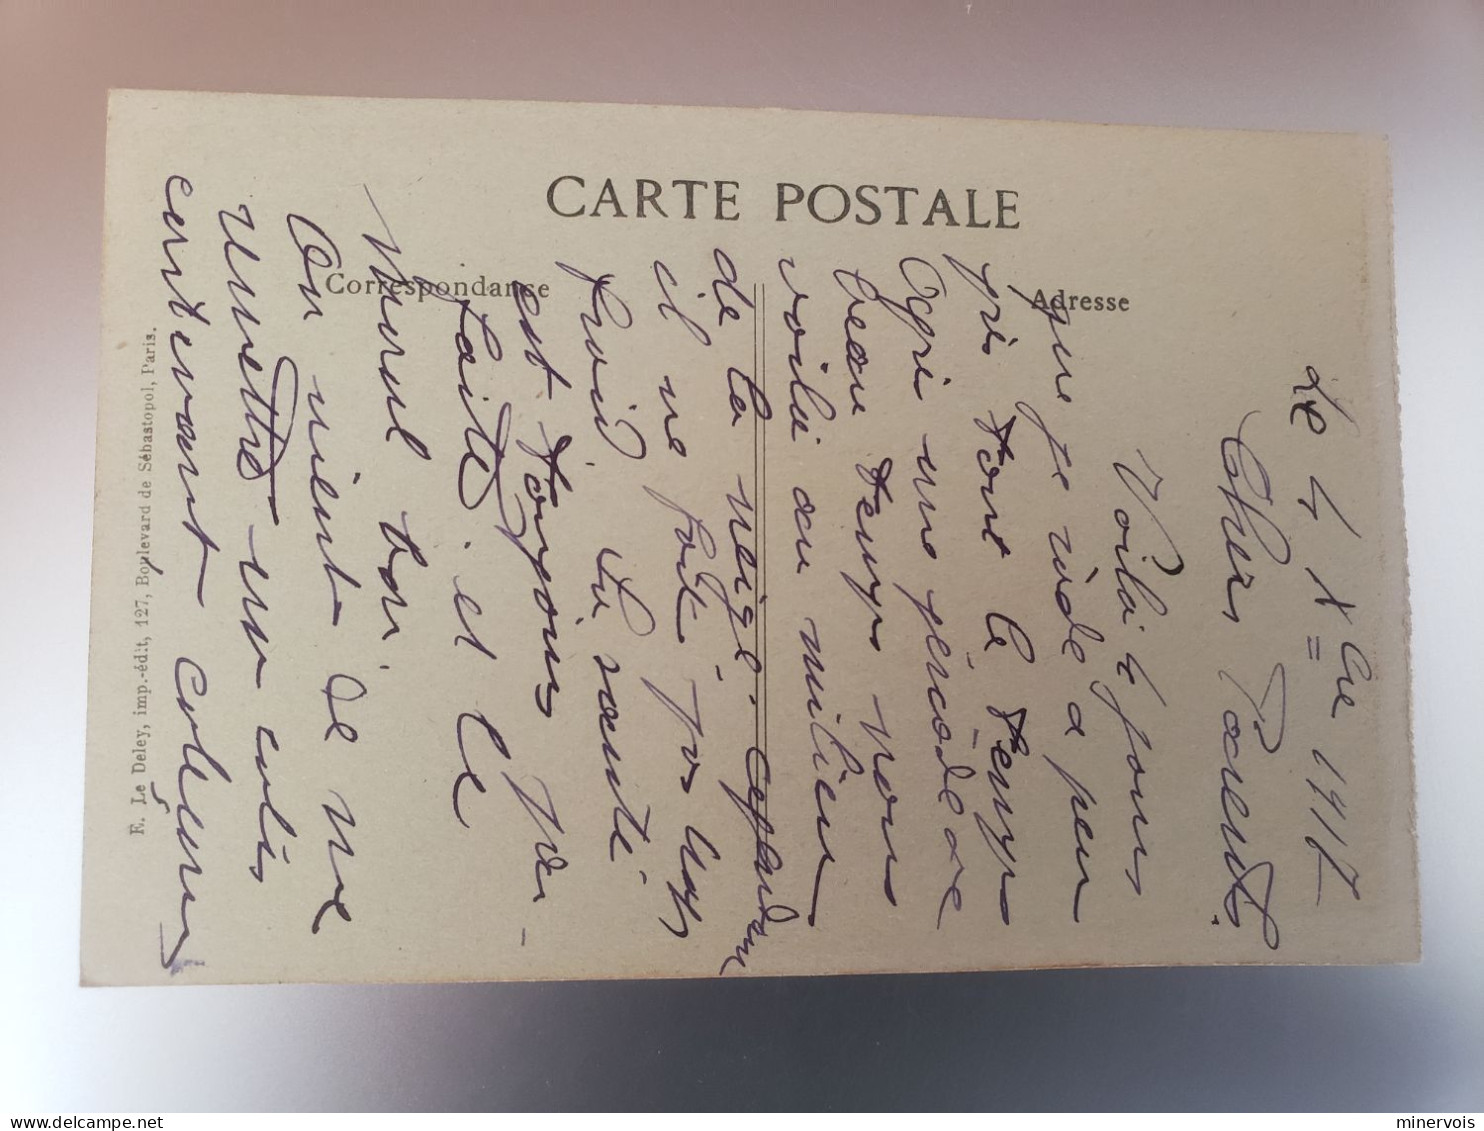 CARTE POSTALE
Correspondance
Adresse
E. Le Deley, imp.-édit, 127, Boulevard de Sébastopol, Paris.
Le 4 Xbre 1917
Chers Parents
Voilà 4 jours
que je rode a peu
près tout le temps
Apre une période de
beau temps nous
voilà au milieu
de la neige. cependant
il ne fait pas
froid. La santé
est toujours par-
faite. et le
moral bon.
On vient de me
remettre un colis
contenant
minervois